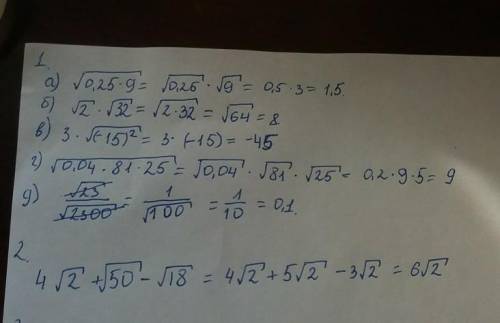 1.
а) √0,25·9 = √0,25 · √9 = 0,5·3 = 1,5.
б) √2 · √32 = √2·32 = √64 = 8
в) 3 · √(-15)² = 3 · (-15) = -45
г) √0,04 · 81 · 25 = √0,04 · √81 · √25 = 0,2·9·5 = 9
д) √25/√2500 = 1/√100 = 1/10 = 0,1.
2.
4√2 + √50 - √18 = 4√2 + 5√2 - 3√2 = 6√2